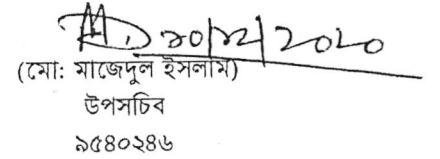 ২০/১২/২০২০
(মো: মাজেদুল ইসলাম)
উপসচিব
৯৫৪০২৪৬